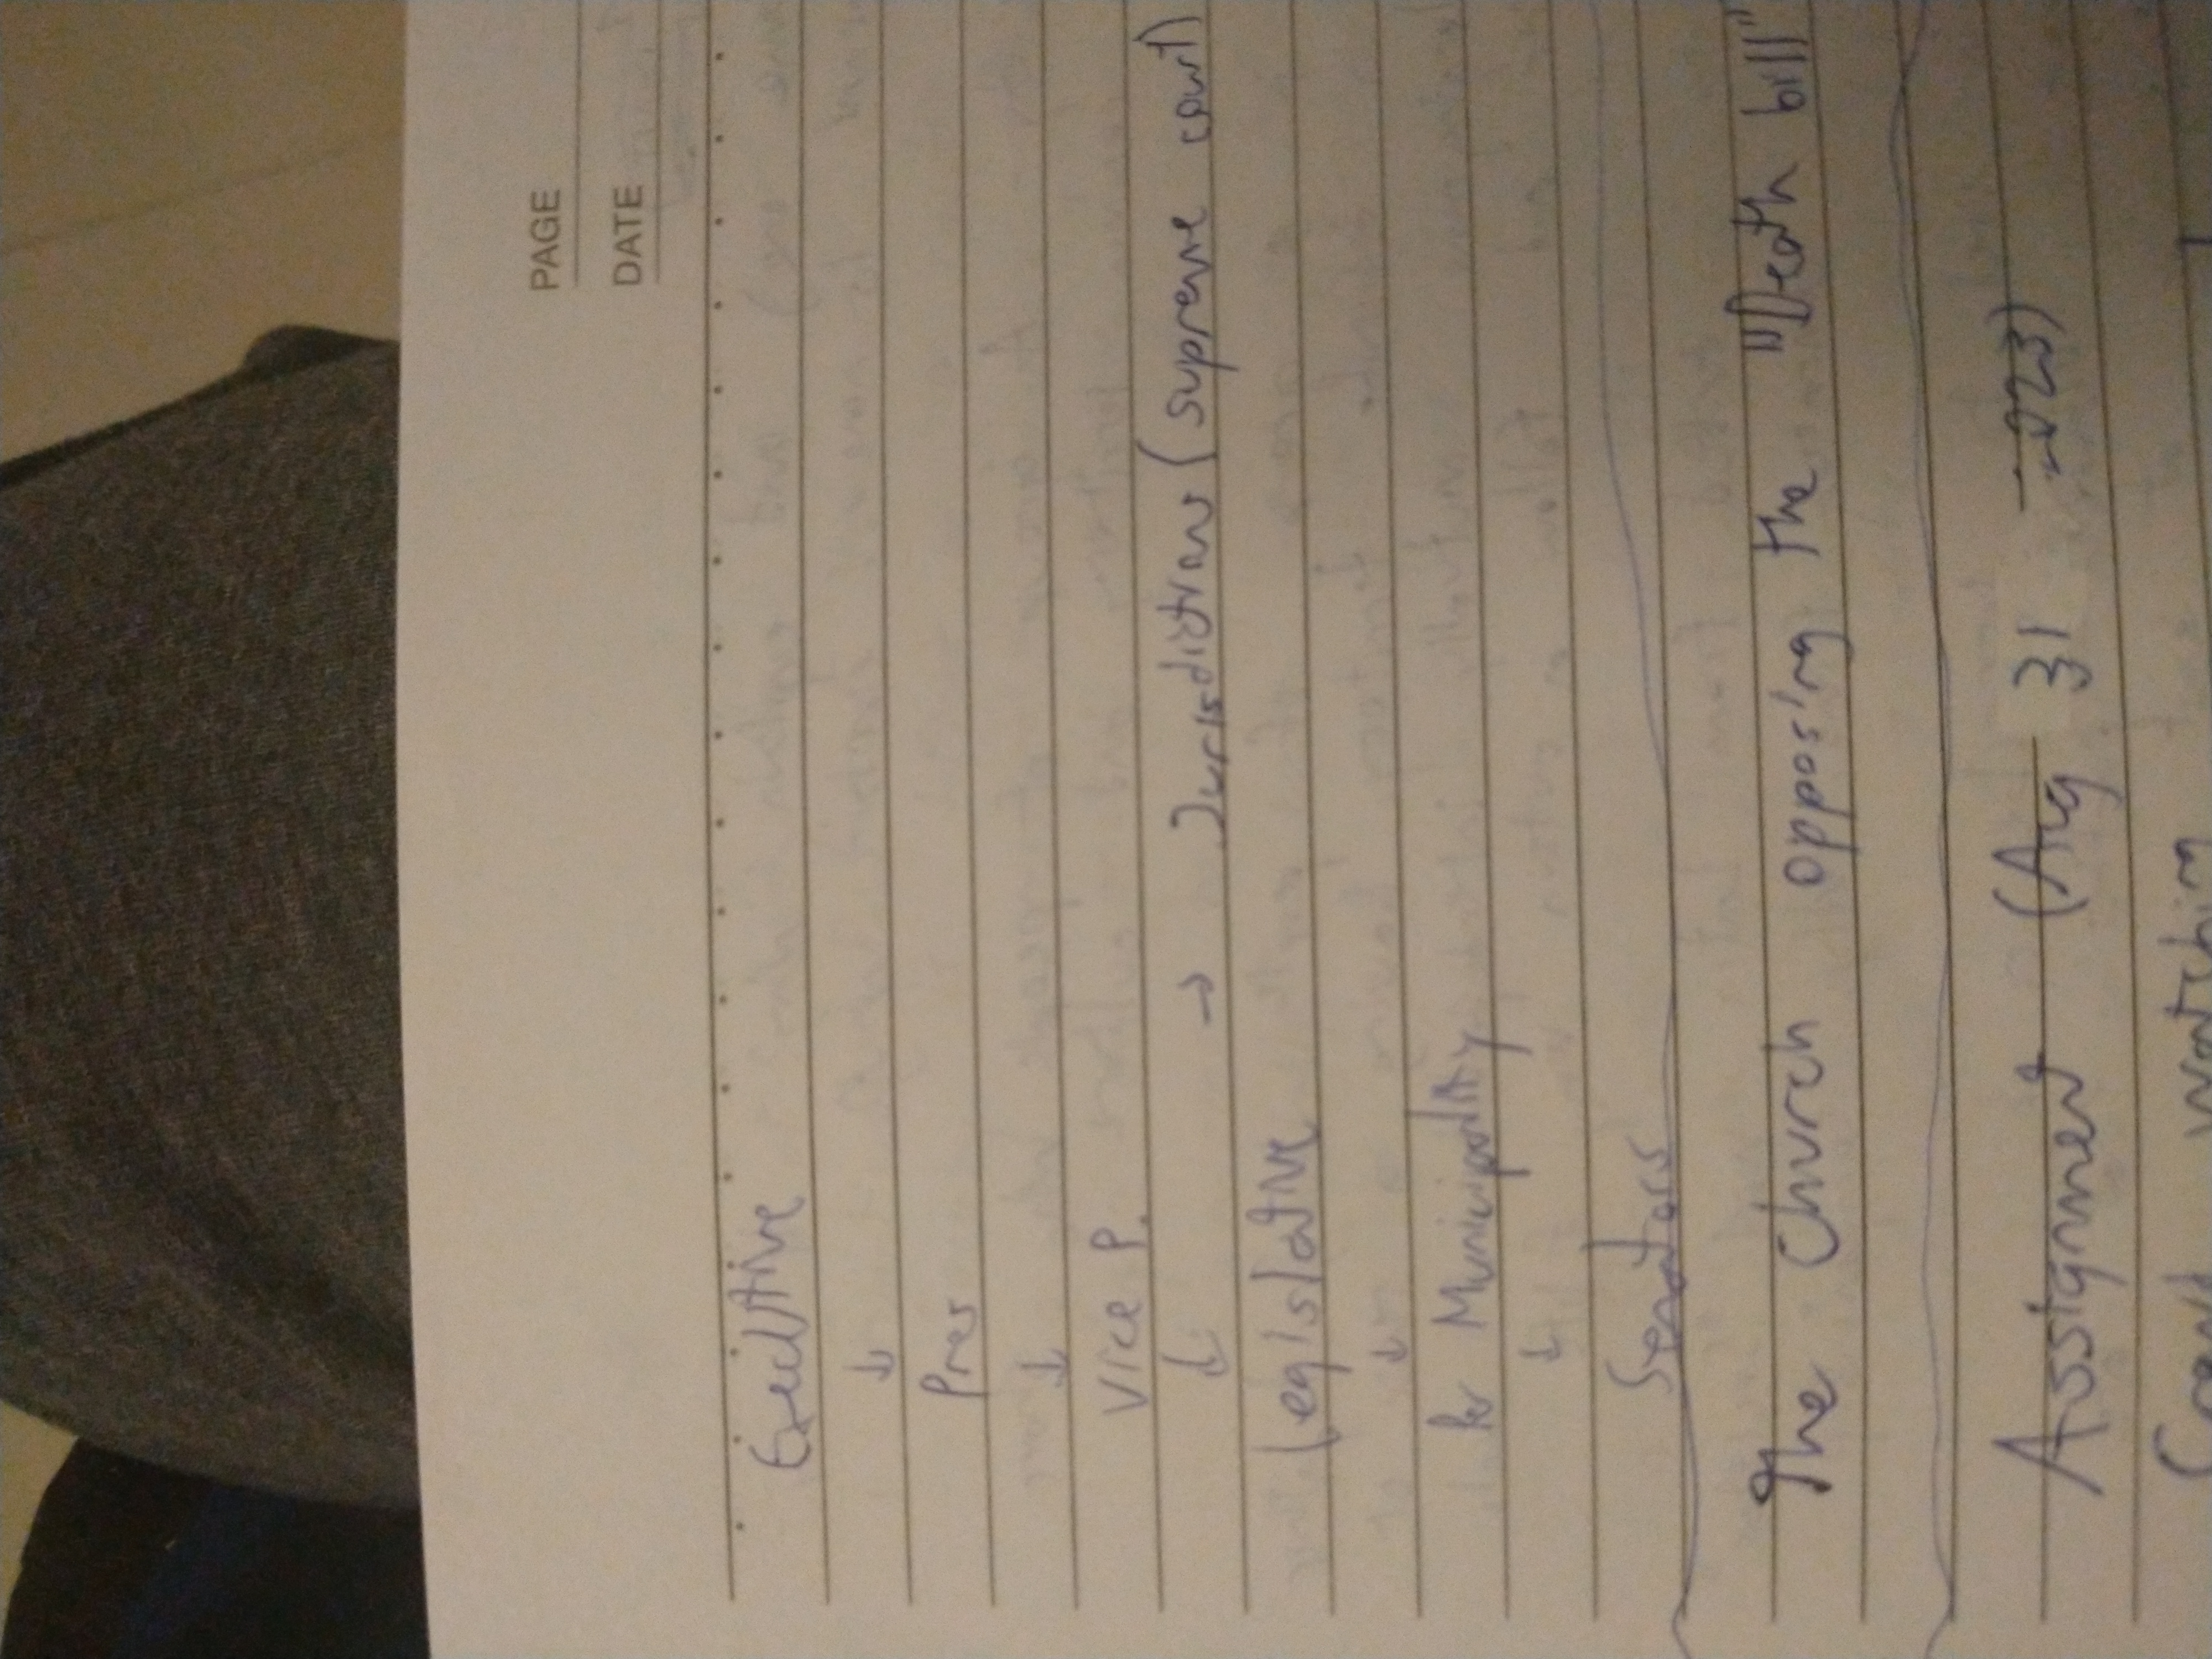 PAGE
DATE
Executive
↓
Pres
↓
Vice P.
↓ → Jurisdictions (supreme court)
Legislative
↓
Per Municipality
↓
Senators
The church opposing the "Death bill"
Assignment (Aug 31 2023)
Crowd watching